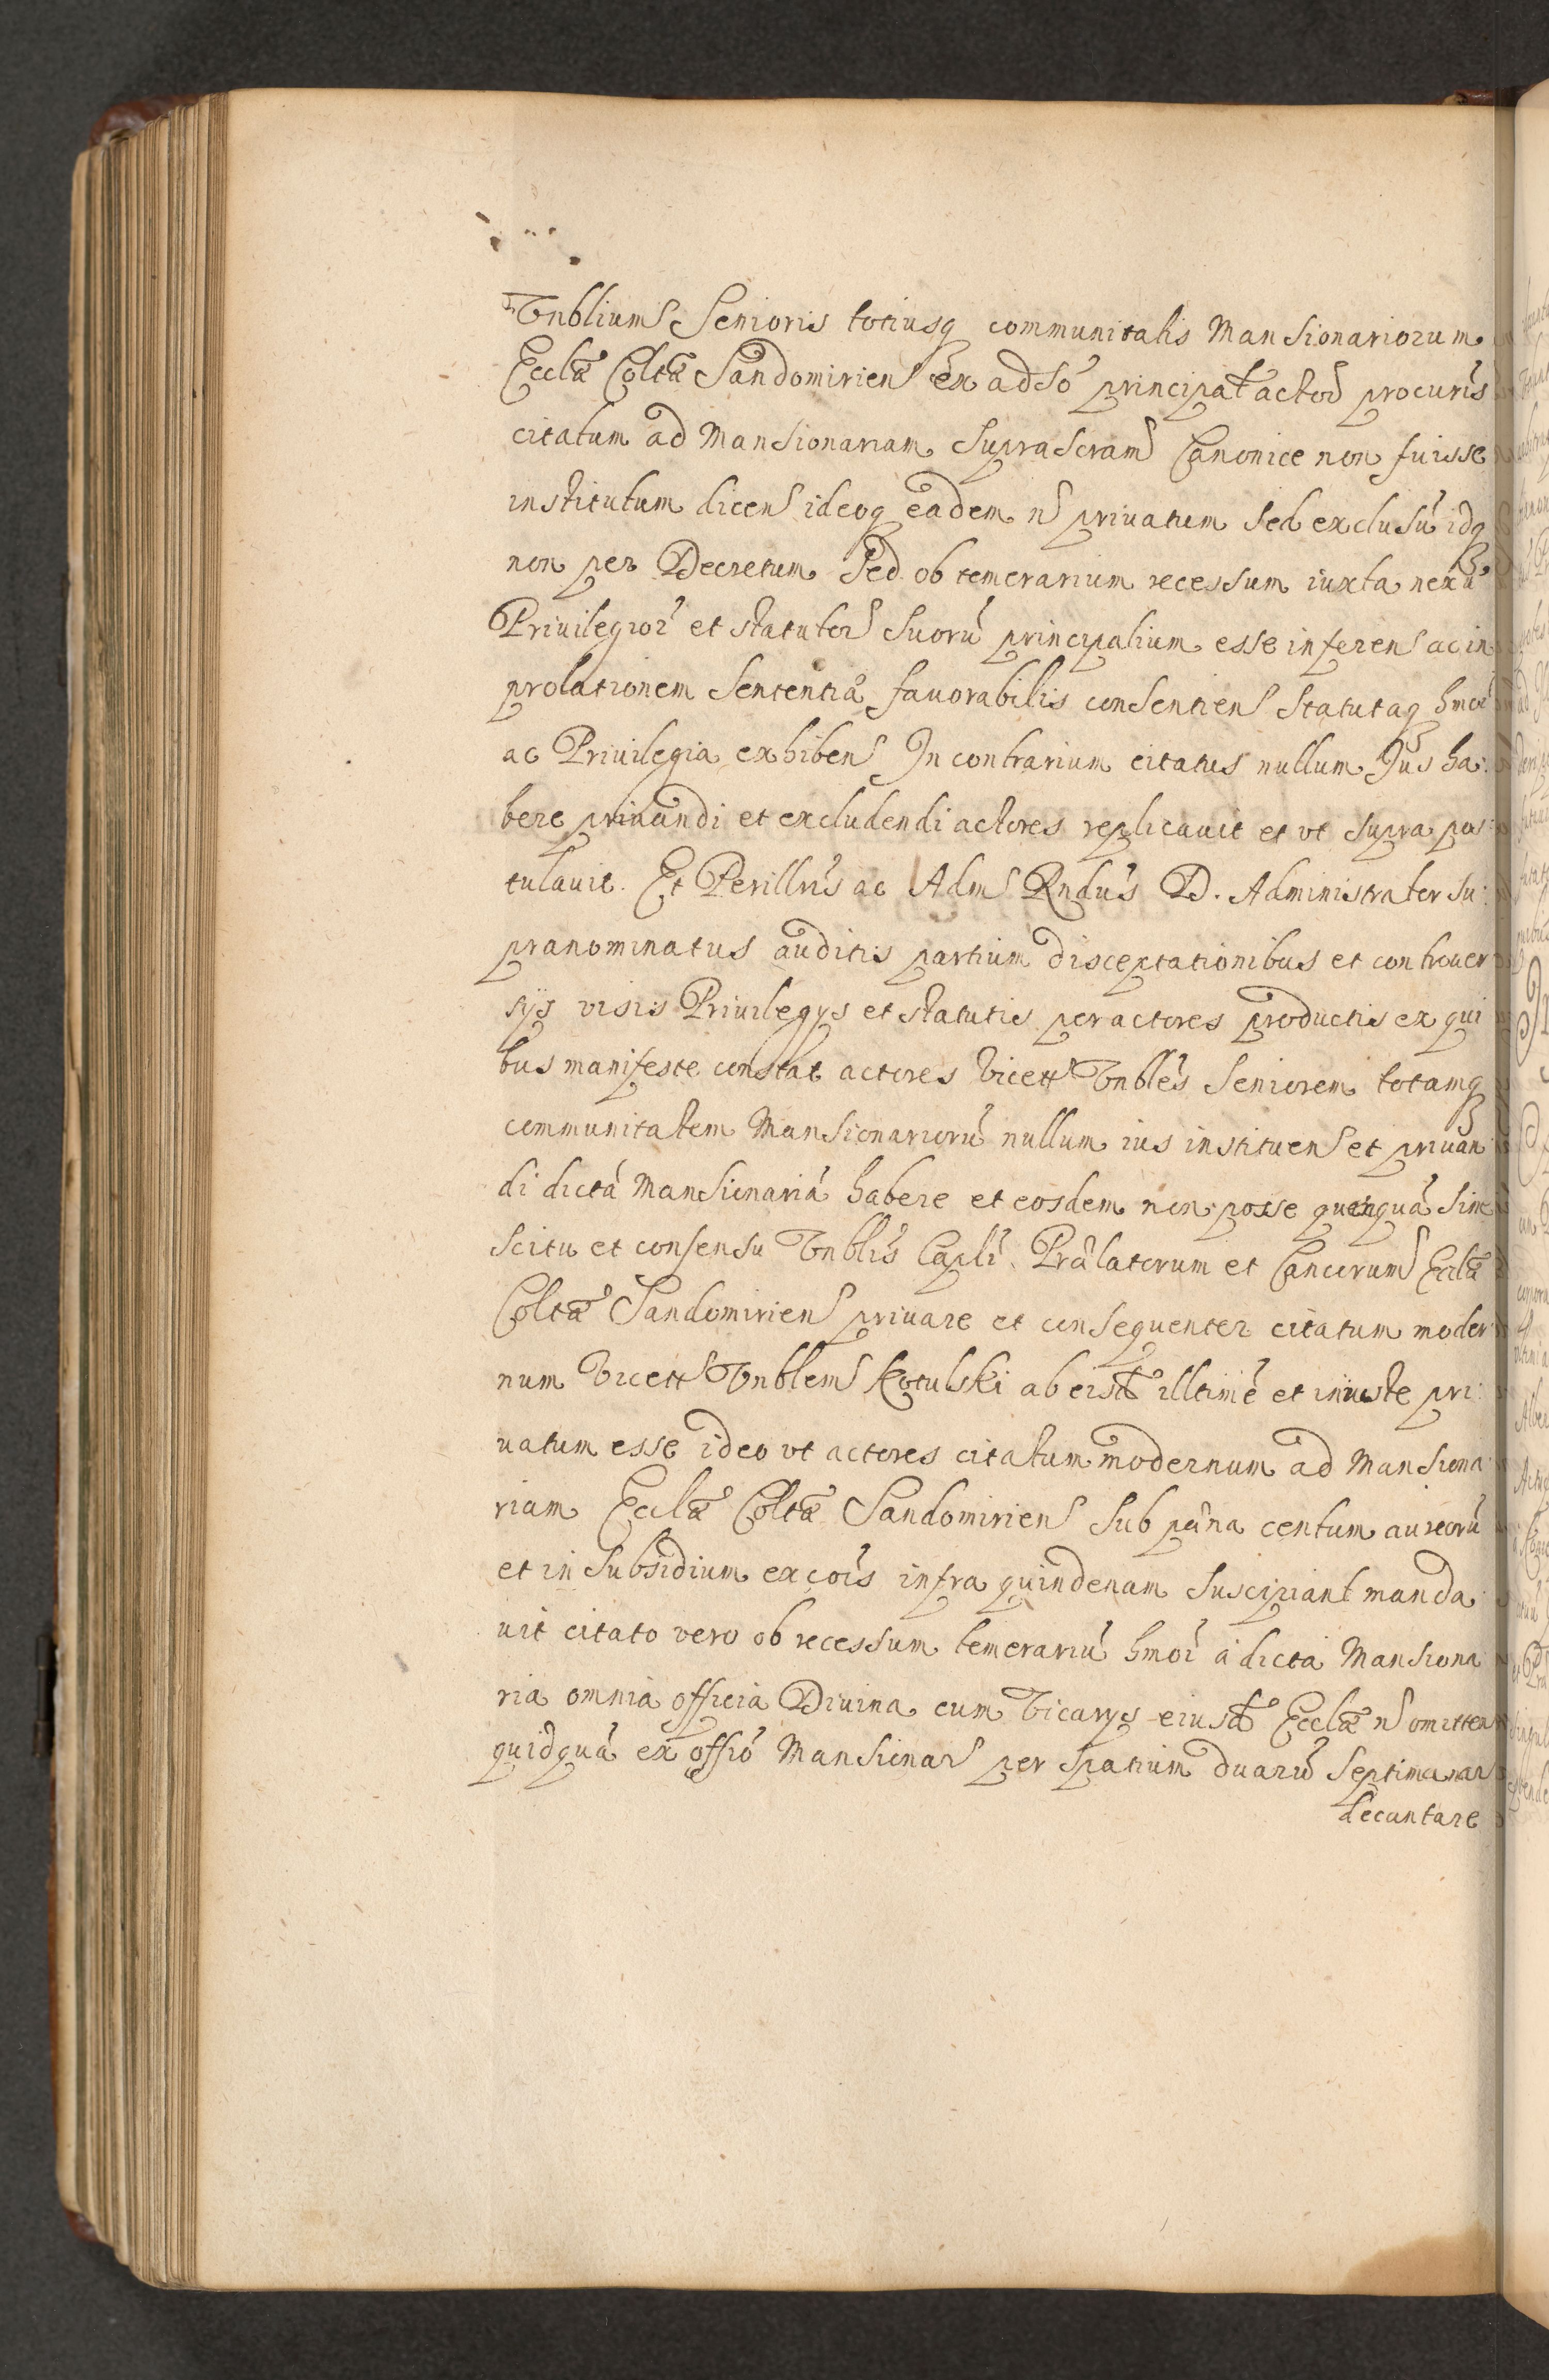 Vnblium Senioris totiusq communitatis Mansionariorum
Eccłæ Colłtæ Sandomirien ex adso principał actor procuris
citatum ad Mansionariam suprascram Canonice non fuisse
institutum dicen ideoq eadem n priuatum sed exclusu idq
non per Decretum Sed ob temerarium recessum iuxta nexu
Priuilegior et statutor suoru principalium esse inferen ac in
prolationem Sententiæ fauorabilis consentien statutaq hmoi
ac Priuilegia exhiben In contrarium citatus nullum Jus ha:
bere priuandi et excludendi actores replicauit et vt supra pos:
tulauit. Et Perillris ac Adm Rndus D. Administrator su:
pranominatus auditis partium disceptationibus et controuer
sijs visis Priuilegijs et statutis per actores productis ex qui
bus manifeste constat actores Vicett Vnbles Seniorem totamq
communitatem Mansionarioru nullum ius instituen et priuan
di dicta Mansionaria habere et eosdem non posse quenqua sine
scitu et consensu Vnblis Capli Prælatorum et Canicorum Eccłæ
Colłtæ Sandomirien priuare et consequenter citatum moder
num Vicett Vnblem Kotulski ab eisd illtime et iniuste pri:
uatum esse ideo vt actores citatum modernum ad Mansiona
riam Eccłæ Colłtæ Sandomirien sub pæna centum aureoru
et in subsidium excois infra quindenam suscipiant manda
uit citato vero ob recessum temerariu hmoi a dicta Mansiona
ria omnia officia Diuina cum Vicarijs eiusd Eccłæ n omitten
quidqua ex offio Mansionar per spatium duaru septimanar
decantare